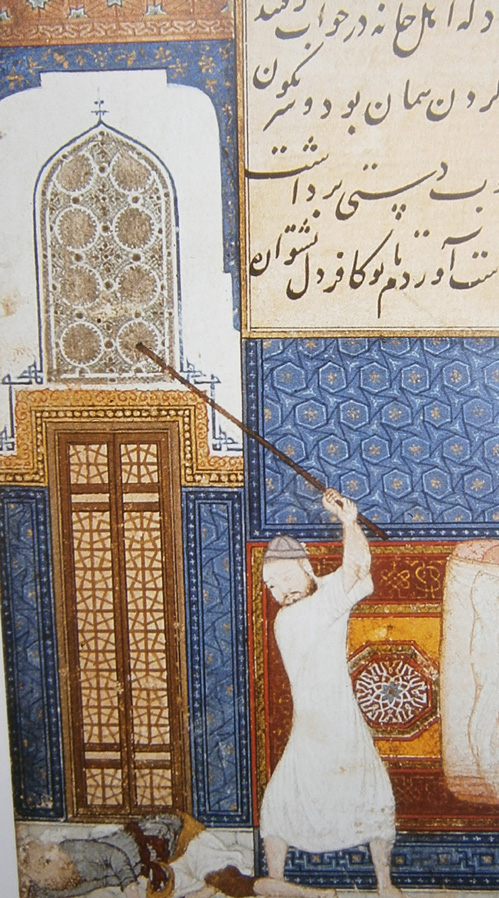 اهل خانه در خواب رفتند
کردن همان بود و سرنگون
دستی برداشت
آوردم با تو کافر دل نتوان